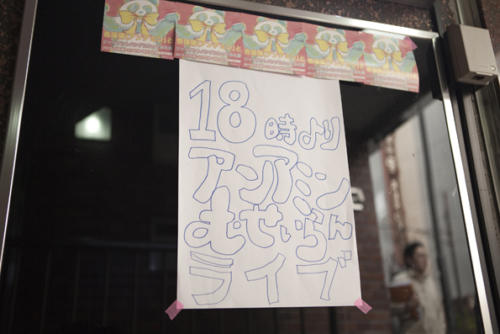 18時より
アンアミン
むせいらん
ライブ